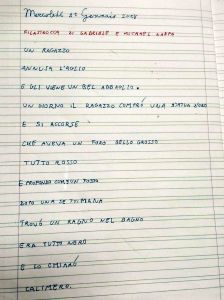 Mercoledì 17 Gennaio 2018
FILASTROCCA DI GABRIELE E MICHAEL
UN RAGAZZO
ANNUSA L'AGLIO
E GLI VIENE UN BEL ABBAGLIO.
UN GIORNO IL RAGAZZO COMPRÓ UNA STATUA D'ORO
E SI ACCORSE
CHE AVEVA UN FORO BELLO GROSSO
TUTTO ROSSO
E PROFONDO COM'È UN FOSSO
DOPO UNA SETTIMANA
TROVÓ UN RAGNO NEL BAGNO
ERA TUTTO NERO
E LO CHIAMÓ
CALIMERO.